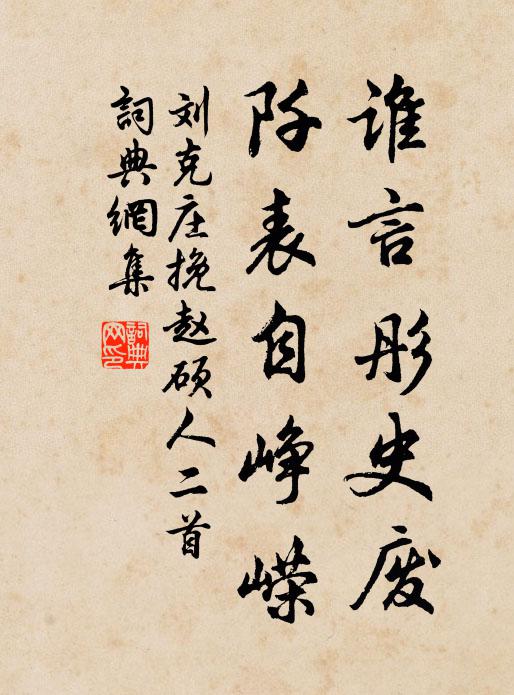 谁言彤史废
阡表自峥嵘
刘克庄挽赵硕人二首
詞典網集
詞典網印